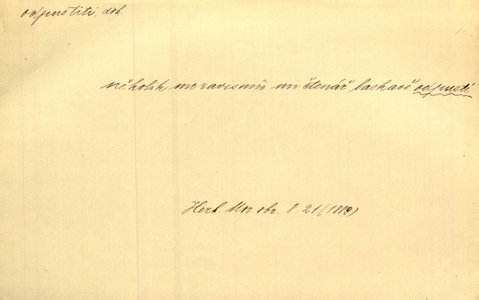 odpustiti dok.
několik moravismů mi čtenář laskavě odpustí
Herb. Mor. obr. 8 21 (1889)